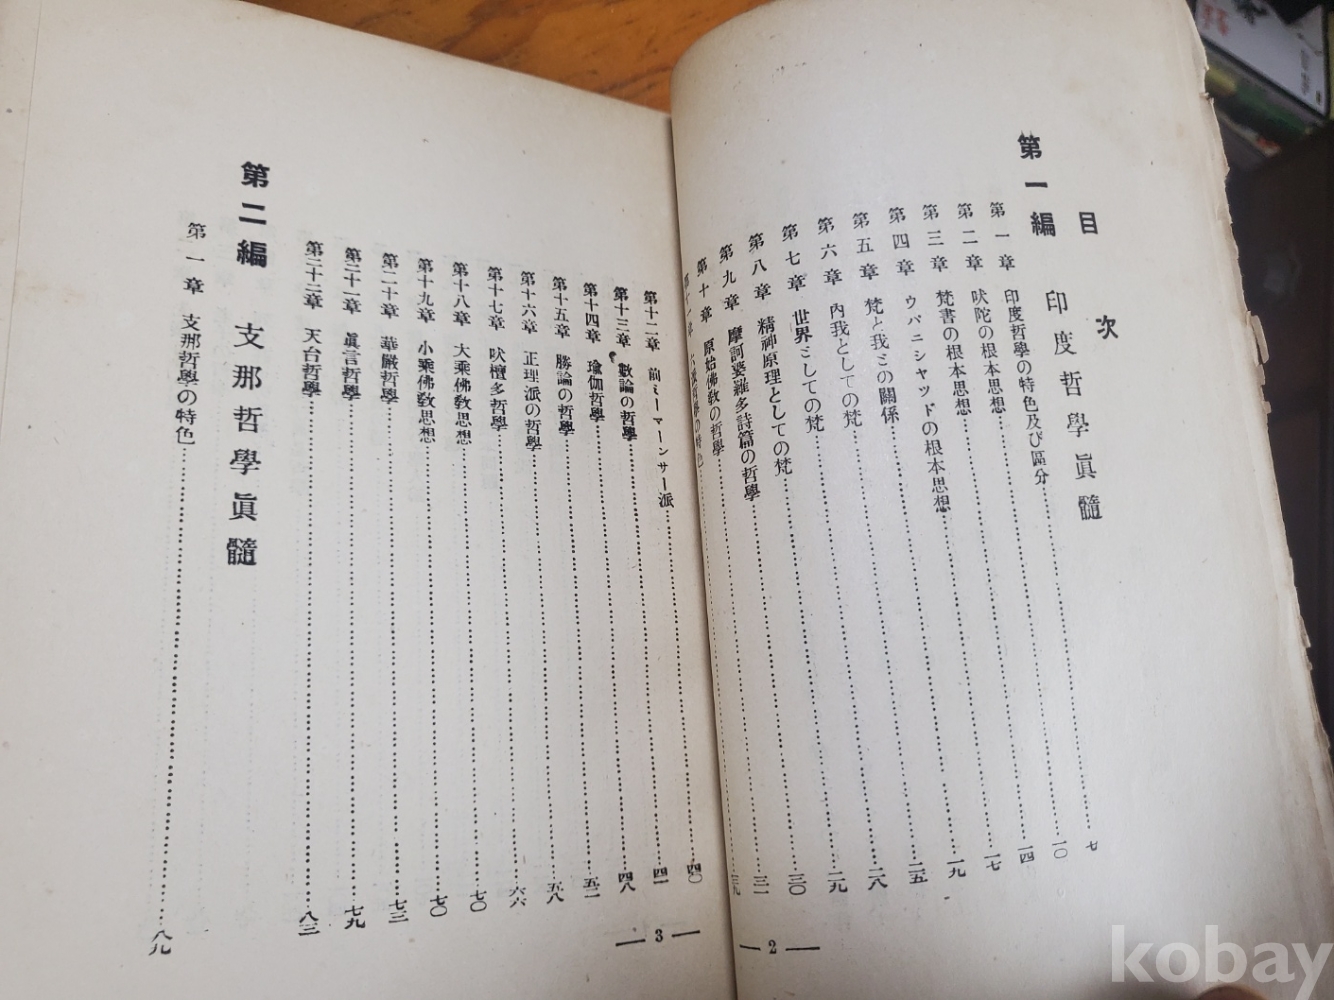 目次
第一編 印度哲學眞髓
第一章 印度哲學の特色及び區分
第二章 吠陀の根本思想
第三章 梵書の根本思想
第四章 ウパニシヤツドの根本思想
第五章 梵と我との關係
第六章 內我としての梵
第七章 世界としての梵
第八章 精神原理としての梵
第九章 摩訶婆羅多詩篇の哲學
第十章 原始佛敎の哲學
七
一〇
一四
一七
一九
二五
二八
二九
三〇
三一
— 2 —
第十一章 の特色
第十二章 前ミーマーンサー派
第十三章 數論の哲學
第十四章 瑜伽哲學
第十五章 勝論の哲學
第十六章 正理派の哲學
第十七章 吠檀多哲學
第十八章 大乘佛敎思想
第十九章 小乘佛敎思想
第二十章 華嚴哲學
第二十一章 眞言哲學
第二十二章 天台哲學
第二編 支那哲學眞髓
第一章 支那哲學の特色
四〇
四一
四八
五二
五八
六六
七〇
七〇
七三
七九
八三
八九
— 3 —
kobay